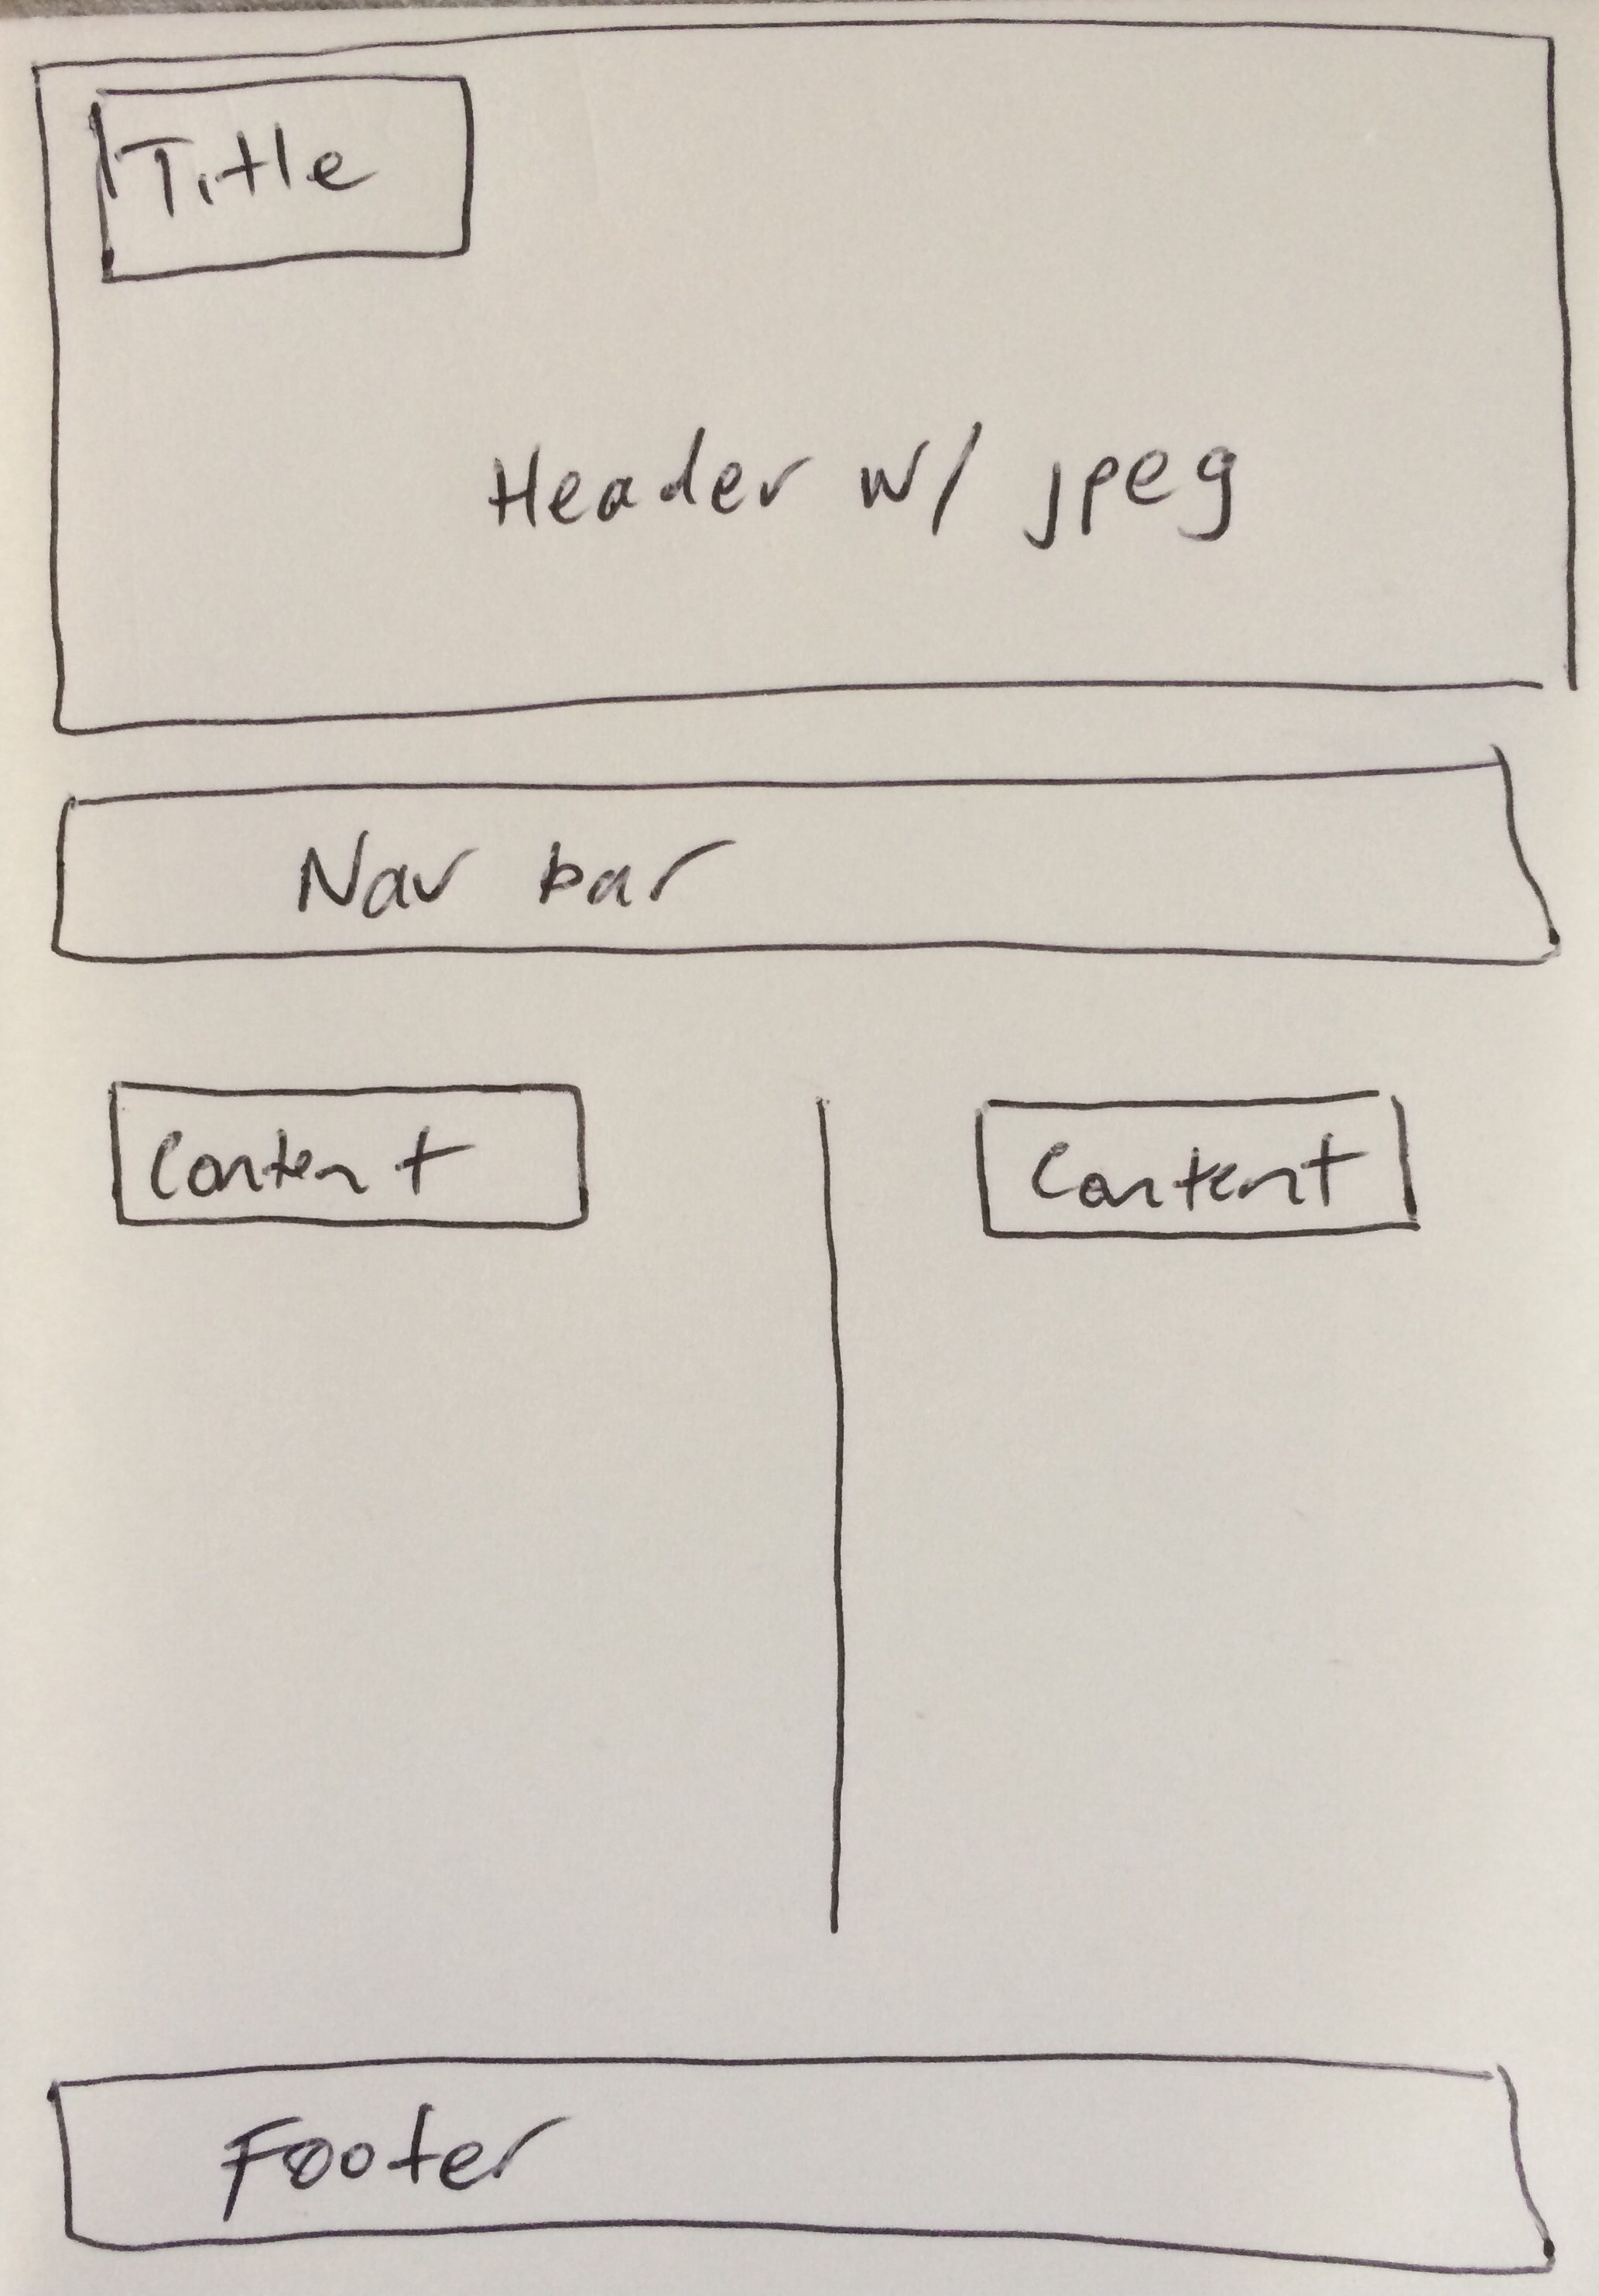 Title
Header w/ jpeg
Nav bar
Content
Content
Footer